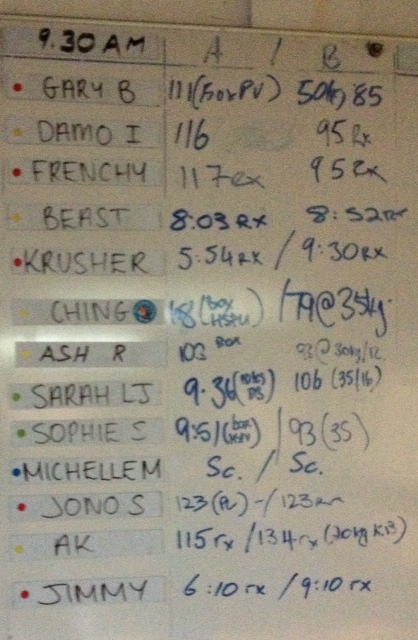 9.30 AM A / B
GARY B 111 (Box PU) 50kg, 85
DAMO I 116 95 Rx
FRENCHY 117 rx 95 Rx
BEAST 8:03 RX 8:52 RX
KRUSHER 5:54 RX / 9:30 RX
CHING (BOX HSPU) / 79@35kg.
ASH R 103 BOX 93@30kg/12
SARAH LJ 9.36 106 (35/16)
SOPHIE S 9:51 (box HSPU) / 93 (35)
MICHELLE M Sc. / Sc.
JONO S 123 (PU) - / 123
AK 115 rx / 134 rx (20kg KB)
JIMMY 6:10 rx / 9:10 rx